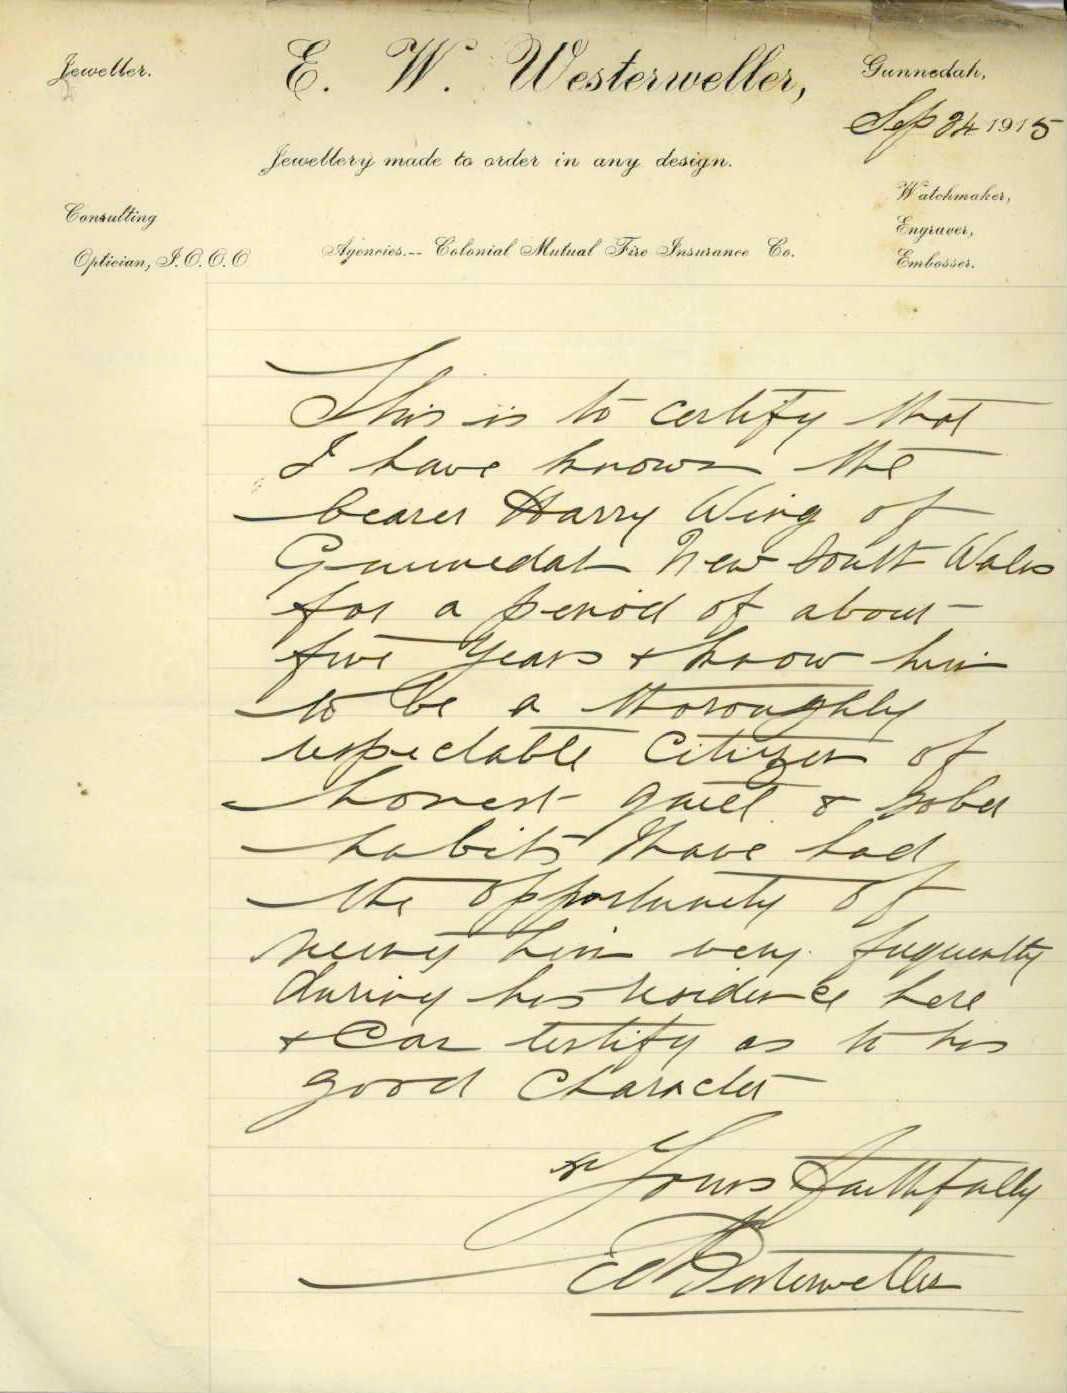 Jeweller.
E. W. Westerweller,
Gunnedah,
Sep 24 1915
Jewellery made to order in any design.
Consulting
Optician, I.O.O.O
Agencies.-- Colonial Mutual Fire Insurance Co.
Watchmaker,
Engraver,
Embosser.
This is to certify that
I have known the
bearer Harry Wing of
Gunnedah New South Wales
for a period of about
five years & know him
to be a thoroughly
respectable citizen of
honest quiet & sober
habits I have had
the opportunity of
seeing him very frequently
during his residence here
& can testify as to his
good character
Yours Faithfully
E W Westerweller